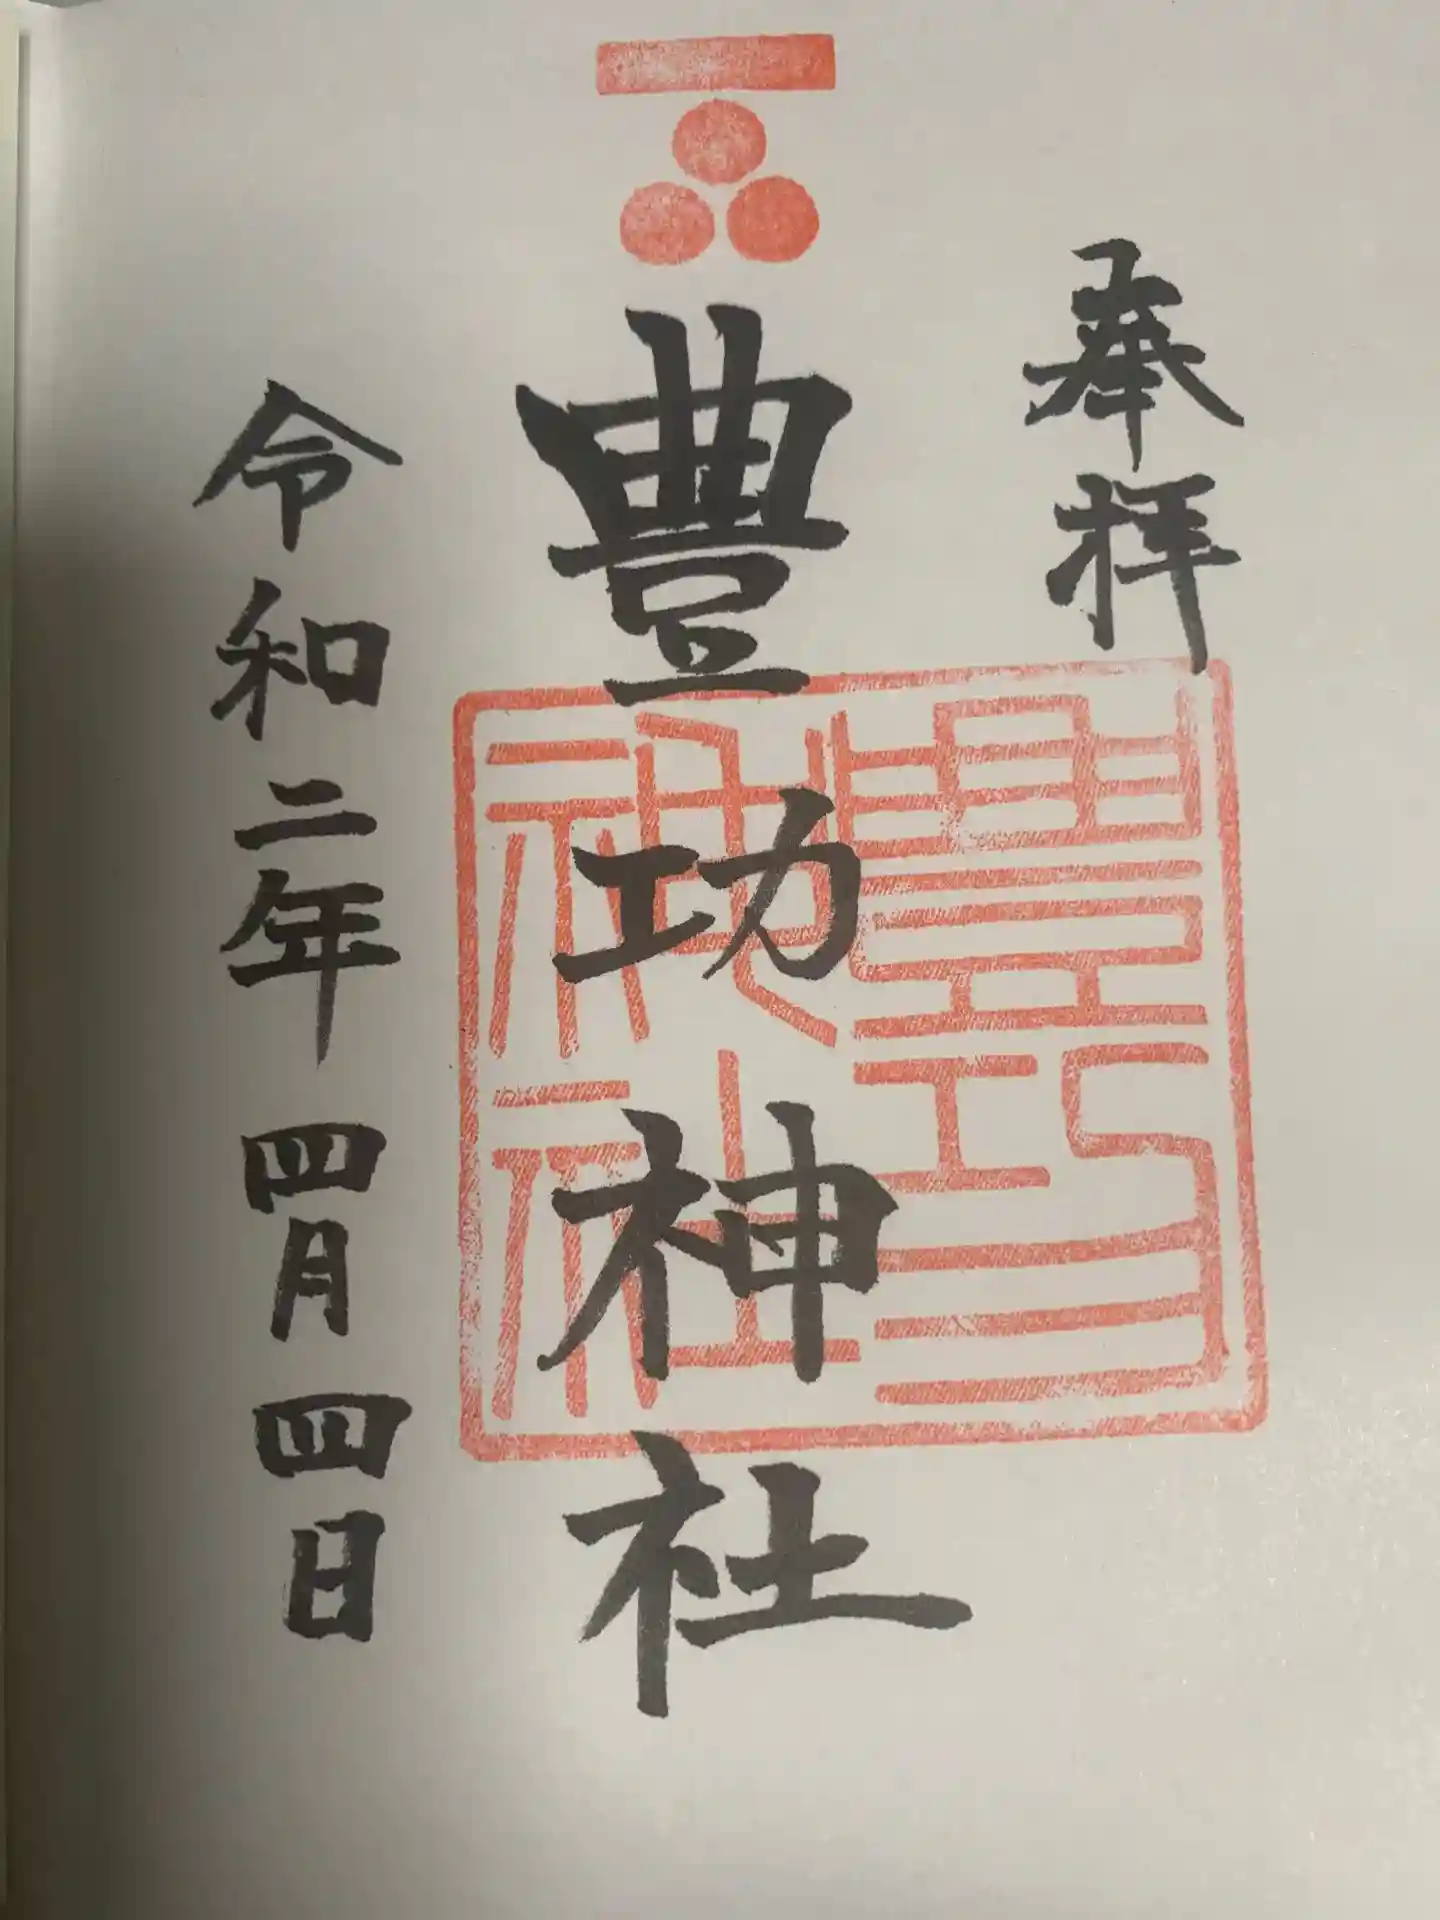 奉拝
豊功神社
豊功神社
令和二年四月四日